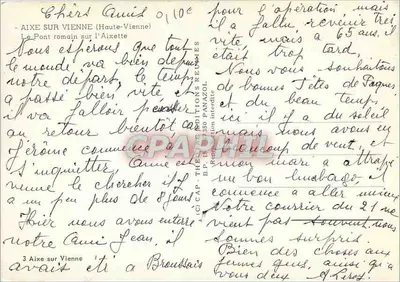 Chers Amis 0,10€
AIXE SUR VIENNE (Haute-Vienne)
Le Pont romain sur l'Aixette
Nous espérons que tout
le monde va bien depuis
notre départ, le temps
a passé bien vite et
il va falloir penser
au retour bientôt car
Jérôme commence à
s'inquiétter. Anne est
venue le chercher il y
a un peu plus de 8 jours
Hier nous avons enterré
notre Ami Jean, il
3 Aixe sur Vienne
avait été à Broussais
pour l'opération, mais
il a fallu revenir très
vite mais a 65 ans il
était trop tard,
Nous vous souhaitons
de bonnes Fêtes de Pâques
et du beau temps,
ici il y a du soleil
mais nous avons eu
beaucoup de vent, et
mon mari a attrapé
un bon lumbago, il
commence a aller mieux
Notre courrier du 21 ne
vient pas souvent, nous
sommes surpris.
Bien des choses aux
jeunes gens, ainsi qu'à
vous deux
EDITIONS REUNIES
PANAZOL
PRAPRIK